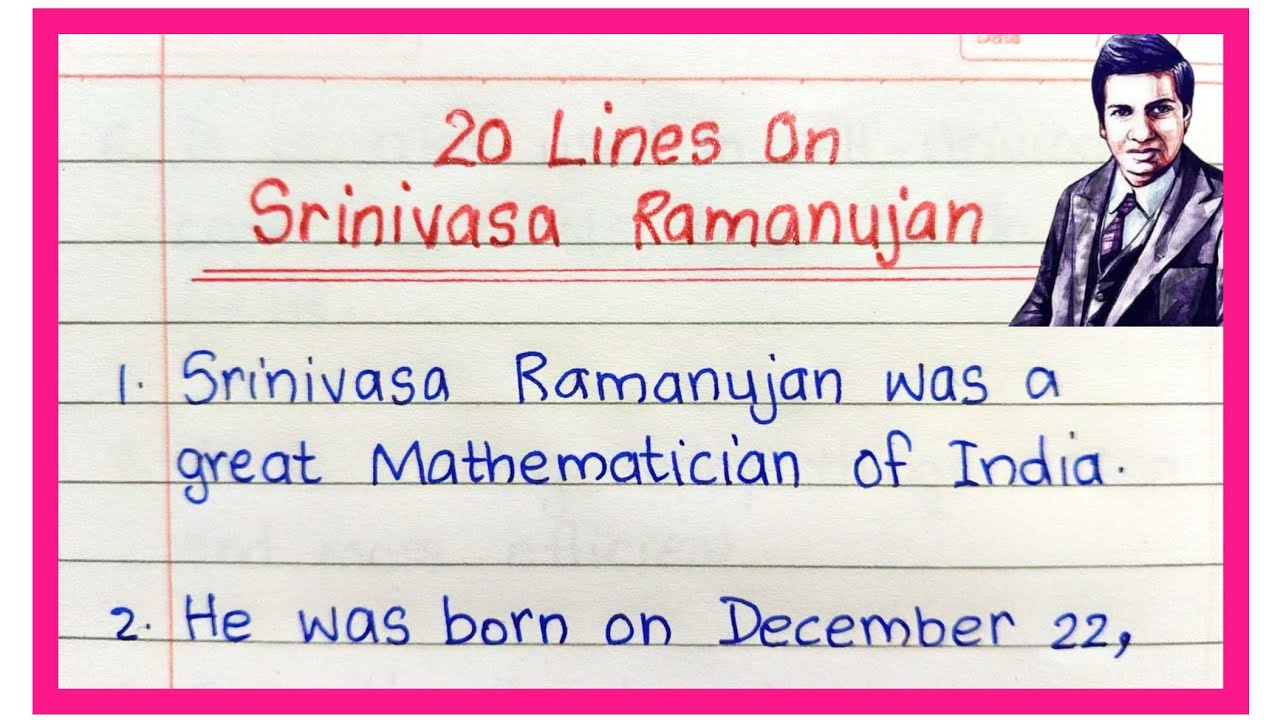 Data
20 Lines On
Srinivasa Ramanujan
1. Srinivasa Ramanujan was a
great Mathematician of India.
2. He was born on December 22,